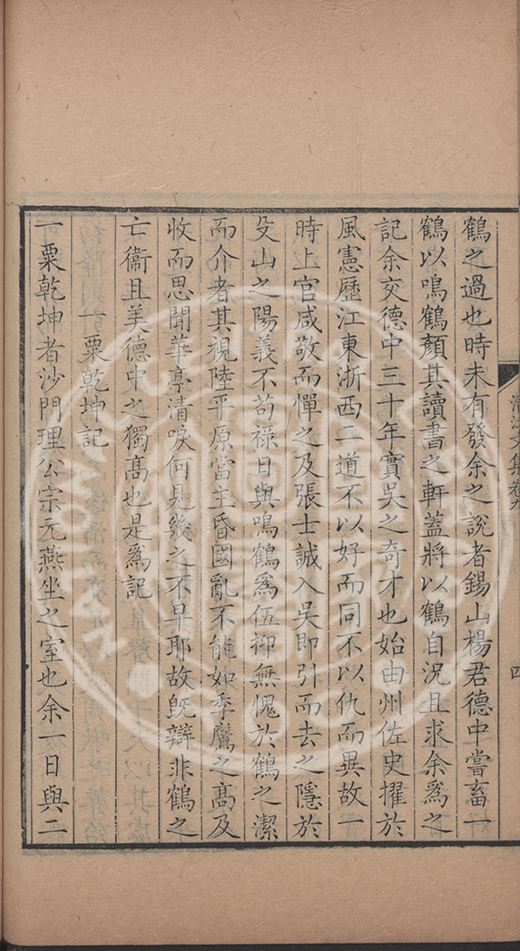 鶴之過也時未有發余之説者錫山楊君德中嘗畜一
鶴以鳴鶴顏其讀書之軒蓋將以鶴自況且求余爲之
記余交德中三十年實吳之奇才也始由州佐史擢於
風憲歷江東浙西二道不以好而同不以仇而異故一
時上官咸敬而憚之及張士誠入吳即引而去之隱於
殳山之陽義不苟祿日與鳴鶴爲伍抑無愧於鶴之潔
而介者其視陸平原當主昏國亂不能如季鷹之高及
收而思聞華亭清唳何見幾之不早耶故旣辯非鶴之
亡衞且美德中之獨高也是爲記
一粟乾坤記
一粟乾坤者沙門理公宗元燕坐之室也余一日與二